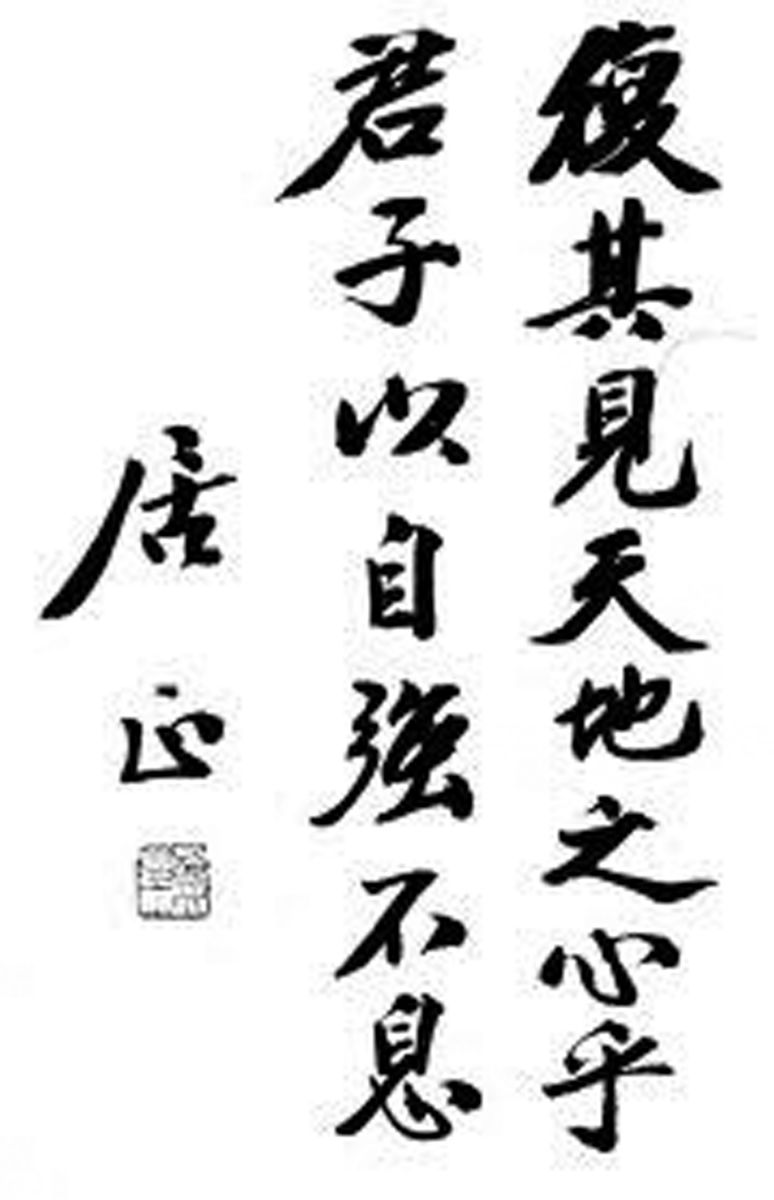 復其見天地之心乎
君子以自強不息
居正